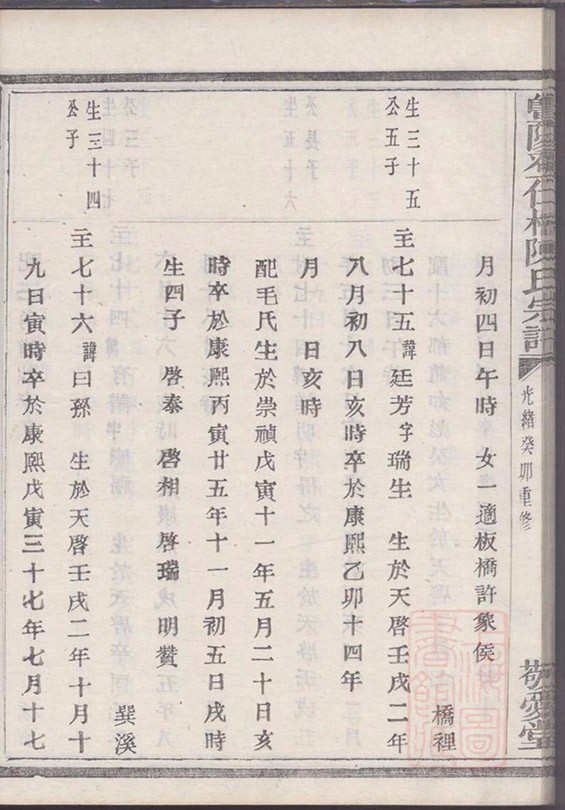 陳氏宗譜
光緒癸卯重修
敬愛堂
月初四日午時 女一適板橋許象侯
橋裡
生三十五
公五子
主七十五諱廷芳字瑞生 生於天啓壬戌二年
八月初八日亥時卒於康熙乙卯十四年
月 日亥時
配毛氏生於崇禎戊寅十一年五月二十日亥
時卒於康熙丙寅廿五年十一月初五日戌時
生四子 啓泰 啓相 啓瑞 明贊
巽溪
生三十四
公子
主七十六諱曰孫 生於天啓壬戌二年十月十
九日寅時卒於康熙戊寅三十七年七月十七